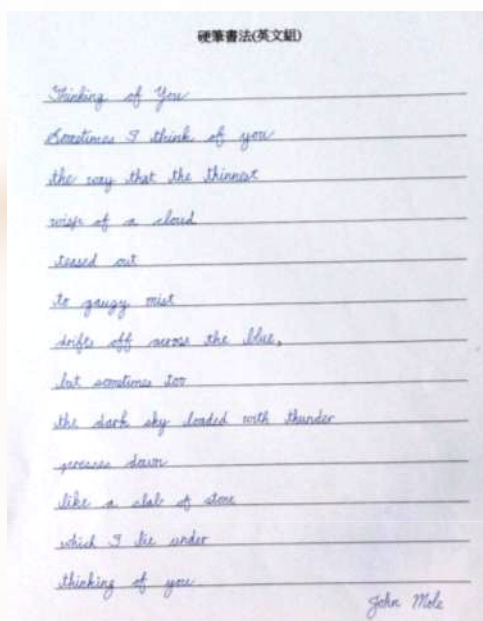 硬筆書法(英文組)
Thinking of You
Sometimes I think of you
the way that the thinnest
wisp of a cloud
teased out
to gauzy mist
drifts off across the blue,
but sometimes too
the dark sky loaded with thunder
presses down
like a slab of stone
which I lie under
thinking of you
John Mole